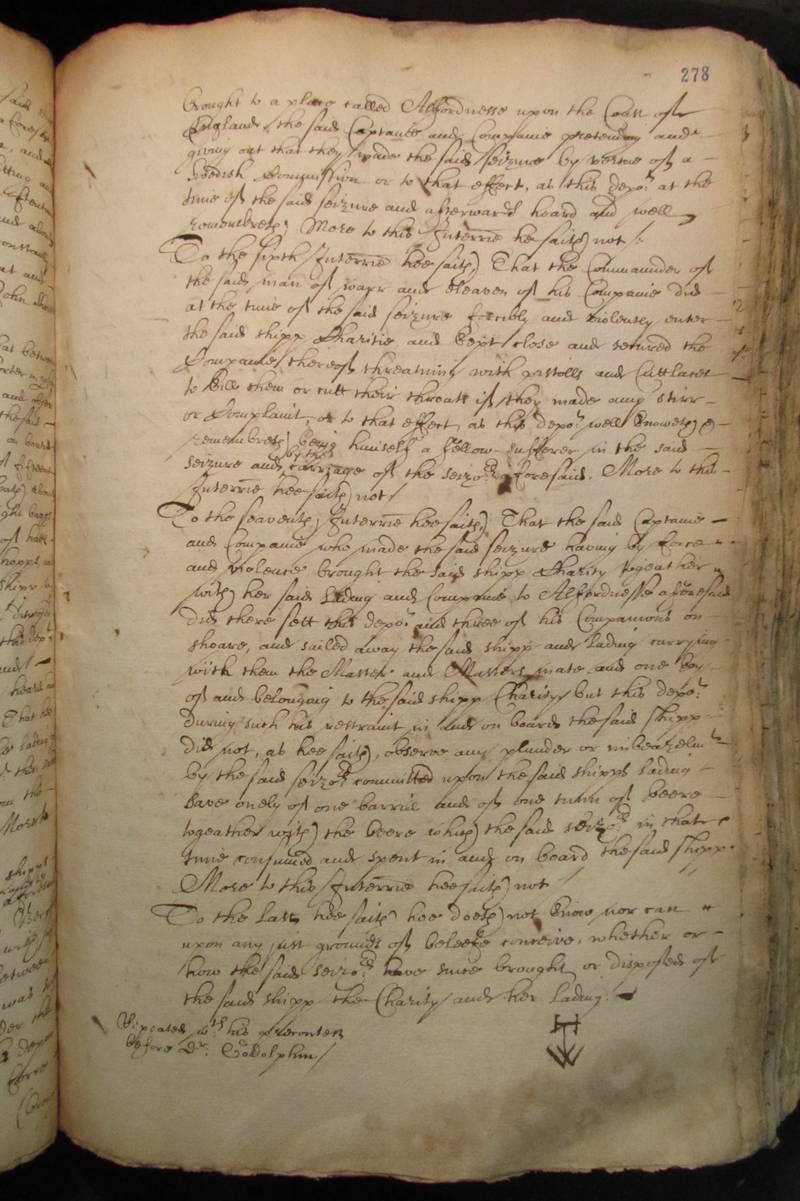 278
brought to a place called Alfordnesse upon the Coast of
England, the said Captaine and Companie pretending and
giving out that they made the said seizure by vertue of a
Swedish Commission or to that effect, as this depot at the
time of the said seizure and afterwards heard and well
remembreth, More to this Interrie he saith not /:
To the sixth Interrie hee saith, That the Commander of
the said man of warr and eleaven of his Companie did
at the time of the said seizure forcibly and violently enter
the said shipp Charitie and kept close and secured the
Companie thereof threatning with pistolls and Cuttlaces
to kill them or cutt their throats if they made any stirr
or Complaint, or to that effect, as this depot well knoweth &
remembreth being himself a fellow-sufferer in the said
seizure and by the carriage of the seizors aforesaid. More to this
Interrie hee saith not /
To the seaventh Interrie hee saith, That the said Captaine
and Companie who made the said seizure having by force
and violence brought the said shipp Charity togeather
with her said lading and Companie to Alfordnesse aforesaid
did there sett this depot and three of his Companions on
shoare, and sailed away the said shipp and lading carrying
with them the Master and Masters mate and one boy
of and belonging to the said shipp Charity, but this depot
during such his restraint in and on board the said shipp
did not, as hee saith, observe any plunder or imbeazelmt
by the said seizors committed upon the said shipps lading
save onely of one barrill and of one tunn of beere
togeather with the beere which the said seizors in that
time consumed and spent in and on board the said shipp.
More to this Interrie hee saith not /
To the last hee saith hee doeth not know nor can
upon any just grounds of beleefe conceive, whether or
how the said seizors have since brought or disposed of
the said shipp the Charity and her lading.
Repeated wth his precontest
before Dr. Godolphin /